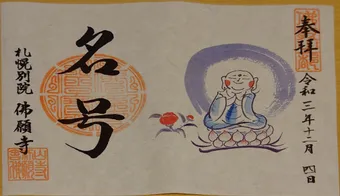 奉拝
令和三年十二月四日
名号
札幌別院
佛願寺